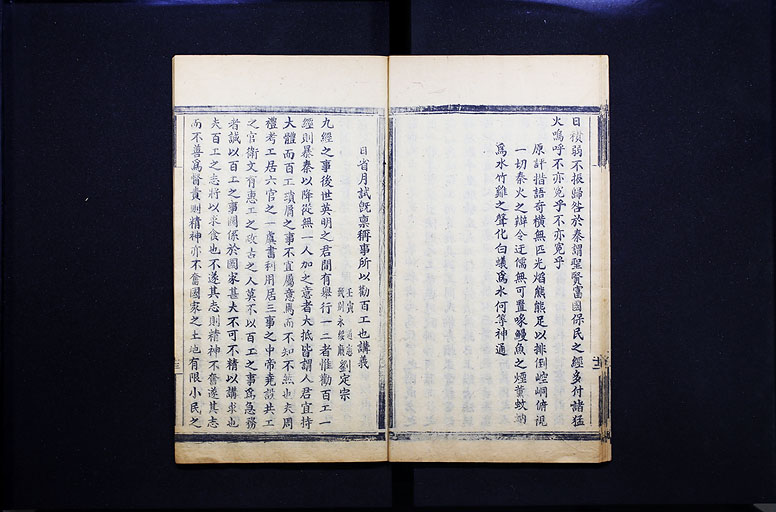 日積弱不振歸咎於秦謂聖賢富國保民之經多付諸猛
火嗚呼不亦寃乎不亦寃乎
原評措語奇橫無匹光焰熊熊足以排倒崆峒俯視
一切秦火之辯令迂儒無可置喙鰻魚之煙薰蚊蚋
爲水竹雞之聲化白蟻爲水何等神通
日省月試旣禀稱事所以勸百工也講義
劉定宗
九經之事後世英明之君間有舉行一二者惟勸百工一
經則暴秦以降從無一人加之意者大抵皆謂人君宜持
大體而百工瑣屑之事不宜屬意焉而不知不然也夫周
禮考工居六官之一虞書利用居三事之中帝堯設共工
之官衛文有惠工之政古之人莫不以百工之事爲急務
者誠以百工之事關係於國家甚大不可不精以講求也
夫百工之志將以求食也不遂其志則精神不奮遂其志
而不善爲督責則精神亦不奮國家之土地有限小民之